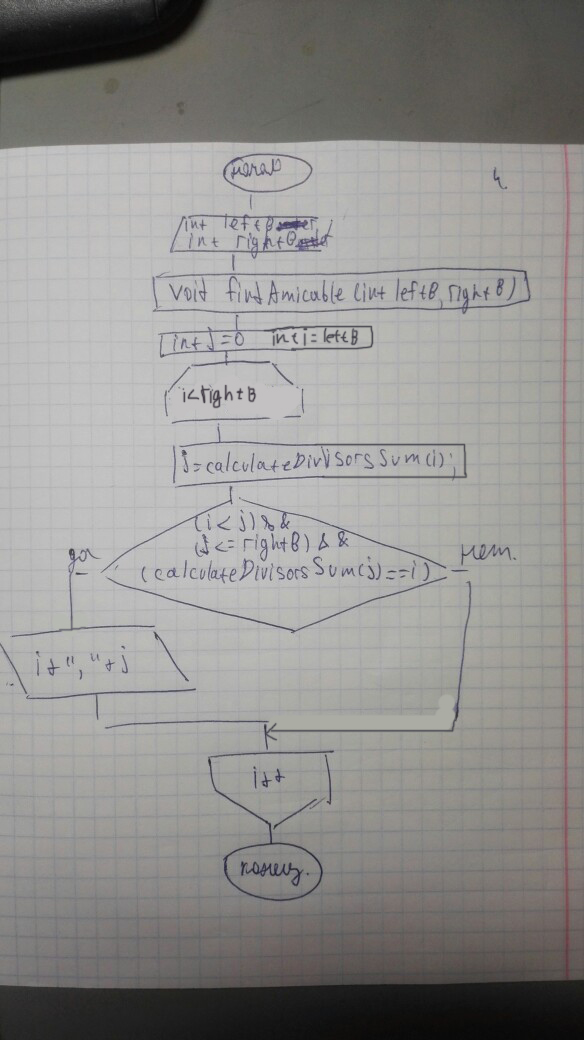 начало
4.
int leftB
int rightB
void findAmicable (int leftB, rightB)
int j=0 int i=leftB
i<rightB
j=calculateDivisorsSum(i);
(i<j) &&
(j<=rightB) &&
(calculateDivisorsSum(j)==i)
да
нет.
i+","+j
i++
конец.